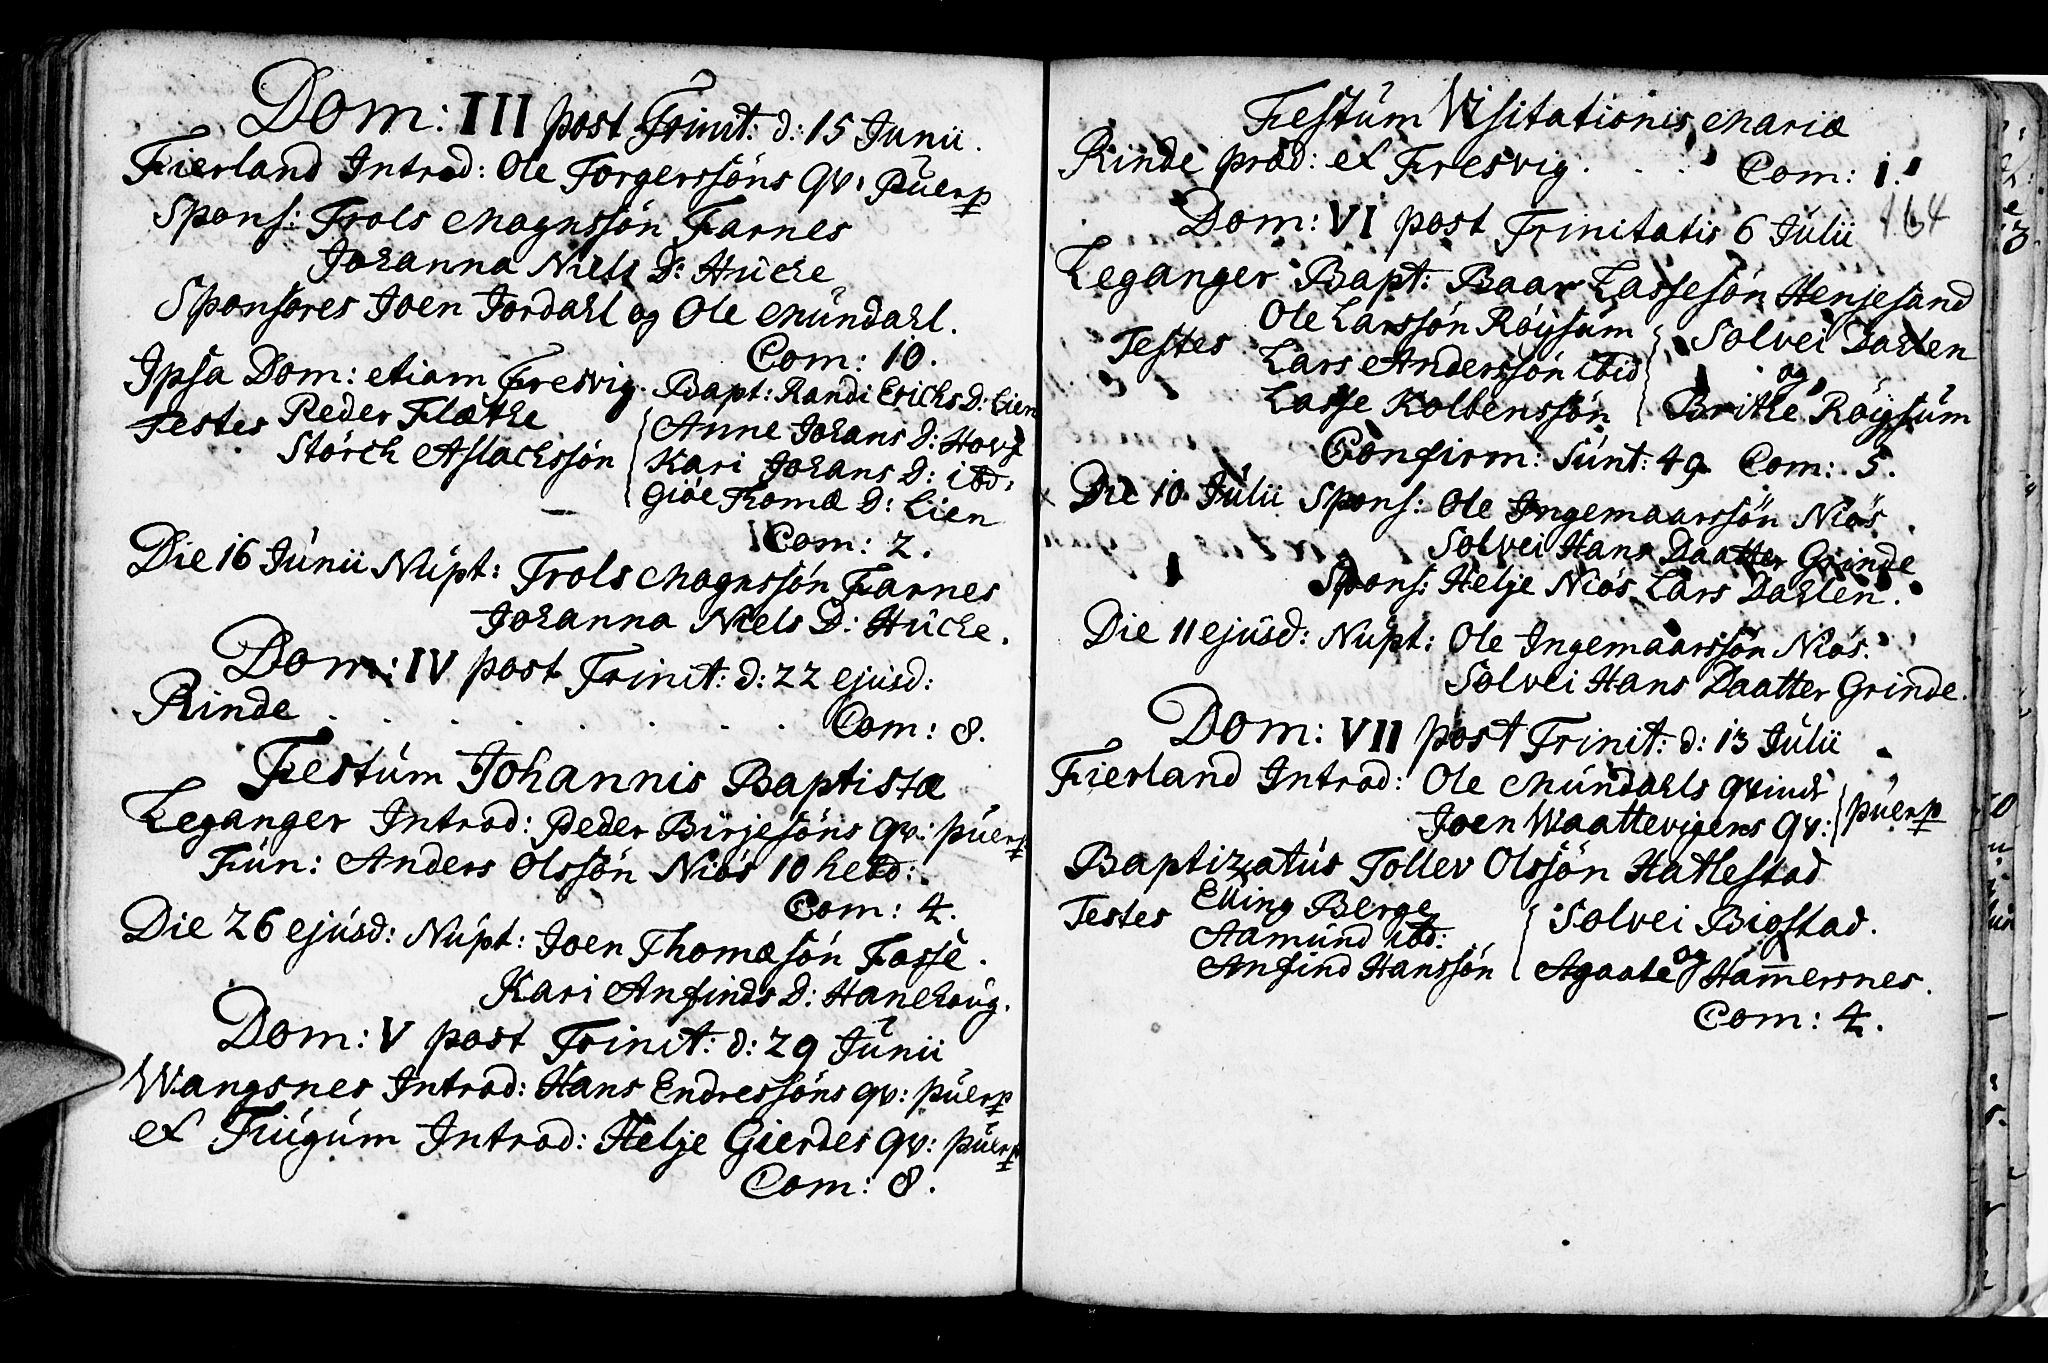 Dom: III post Trinit: d: 15 Junii.
Fierland Introd: Ole Torgerssöns qv: puerp
Spons: Trols Magnssön Farnes
Johanna Niels D: Húche
Sponsores Joen Jordahl og Ole Múndahl.
Com: 10.
Ipsa Dom: etiam Fresvig. Bapt: Randi Erichs D: Lien
Testes Peder Flæthe
Störch Aslachssön
Anne Johans D: Hovf
Kari Johans D: ibd:
Giöe Thomæ D: Lien
Com: 2.
Die 16 Júnii Núpt: Trols Magnssön Farnes
Johanna Niels D: Húche.
Dom: IV post Trinit: d: 22 ejusd:
Rinde . . . . . . . . Com: 8.
Festúm Johannis Baptistæ
Leganger Introd: Peder Birjesöns qv: púerp
Fún: Anders Olssön Niös 10 hebd:
Com: 4.
Die 26 ejúsd: Núpt: Joen Thomæsön Fosse.
Kari Anfinds D: Hanehoúg.
Dom: V post Trinit: d: 29 Júnii
Wangsnes Introd: Hans Endressöns qv: púerp
et Fiúgúm Introd: Helje Gierdes qv: púerp
Com: 8.
Festúm Visitationis Mariæ
Rinde præd: et Fresvig. . . . Com: 1.
164
Dom: VI post Trinitatis 6 Júlii
Leganger Bapt: Baar Lassesön Henjesand
Testes Ole Larssön Röysúm
Lars Anderssön ibid
Lasse Kolbenssön
Solvei Dahlen
og
Brithe Röysúm
Confirm: Súnt: 49 Com: 5.
Die 10 Júlii Spons: Ole Ingemaarssön Niös.
Solvei Hans Daatter Grinde
Spons: Helje Niös Lars Dahlen.
Die 11 ejúsd: Núpt: Ole Ingemaarssön Niös.
Solvei Hans Daatter Grinde.
Dom: VII post Trinit: d: 13 Júlii
Fierland Introd: Ole Múndahls qvinde
Joen Waattevigens qv: púerp
Baptizatús Tollev Olssön Hatlestad
Testes Elling Berge
Aamúnd ibd:
Anfind Hanssön
Solvei Bigstad.
Agaate og Ham̄ersnes.
Com: 4.